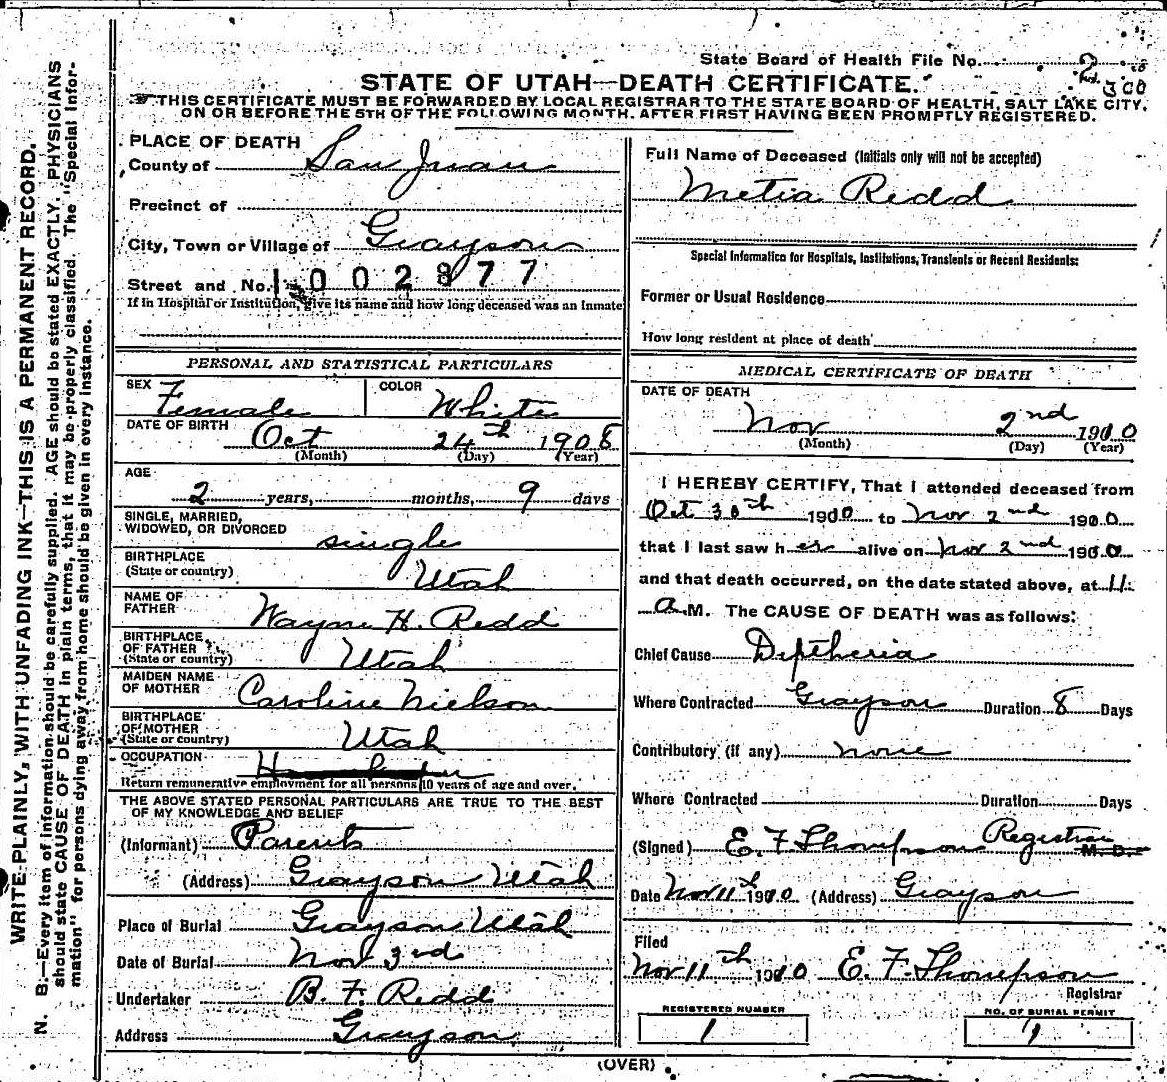 State Board of Health File No. 2
300
STATE OF UTAH—DEATH CERTIFICATE.
THIS CERTIFICATE MUST BE FORWARDED BY LOCAL REGISTRAR TO THE STATE BOARD OF HEALTH, SALT LAKE CITY,
ON OR BEFORE THE 5TH OF THE FOLLOWING MONTH, AFTER FIRST HAVING BEEN PROMPTLY REGISTERED.
WRITE PLAINLY, WITH UNFADING INK—THIS IS A PERMANENT RECORD.
N. B.—Every item of information should be carefully supplied. AGE should be stated EXACTLY. PHYSICIANS
should state CAUSE OF DEATH in plain terms, that it may be properly classified. The "Special Infor-
mation" for persons dying away from home should be given in every instance.
PLACE OF DEATH
County of San Juan
Precinct of
City, Town or Village of Grayson
Street and No. 1002877
If in Hospital or Institution, give its name and how long deceased was an Inmate
PERSONAL AND STATISTICAL PARTICULARS
SEX Female COLOR White
DATE OF BIRTH Oct 24th 1908
(Month) (Day) (Year)
AGE
2 years, months, 9 days
SINGLE, MARRIED,
WIDOWED, OR DIVORCED single
BIRTHPLACE
(State or country) Utah
NAME OF
FATHER Wayne H. Redd
BIRTHPLACE
OF FATHER
(State or country) Utah
MAIDEN NAME
OF MOTHER Caroline Nielson
BIRTHPLACE
OF MOTHER
(State or country) Utah
OCCUPATION
Return remunerative employment for all persons 10 years of age and over.
THE ABOVE STATED PERSONAL PARTICULARS ARE TRUE TO THE BEST
OF MY KNOWLEDGE AND BELIEF
(Informant) Parents
(Address) Grayson Utah
Place of Burial Grayson Utah
Date of Burial Nov 3rd
Undertaker B. F. Redd
Address Grayson
Full Name of Deceased (Initials only will not be accepted)
Metia Redd
Special Information for Hospitals, Institutions, Transients or Recent Residents:
Former or Usual Residence
How long resident at place of death
MEDICAL CERTIFICATE OF DEATH
DATE OF DEATH
Nov 2nd 1910
(Month) (Day) (Year)
I HEREBY CERTIFY, That I attended deceased from
Oct 30th 1910 to Nov 2nd 1910
that I last saw her alive on Nov 2nd 1910
and that death occurred, on the date stated above, at 11
a.M. The CAUSE OF DEATH was as follows:
Chief Cause Diptheria
Where Contracted Grayson Duration 8 Days
Contributory (if any) none
Where Contracted Duration Days
(Signed) E. F. Thompson Registrar M. D.
Date Nov 11th 1910 (Address) Grayson
Filed
Nov 11th 1910 E. F. Thompson
Registrar
REGISTERED NUMBER
1
NO. OF BURIAL PERMIT
1
(OVER)